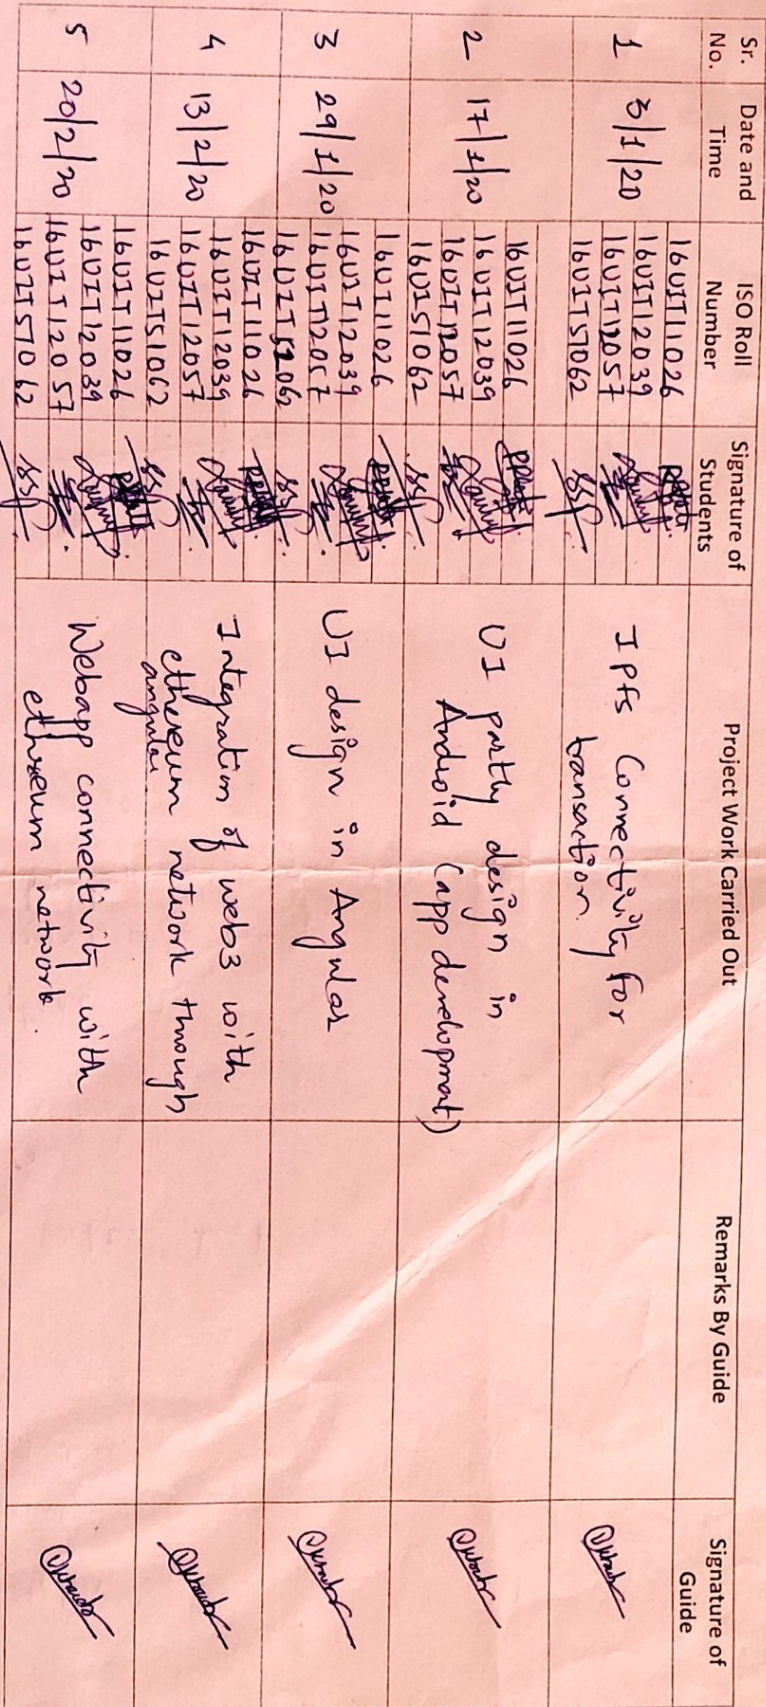 Sr. No.
Date and Time
ISO Roll Number
Signature of Students
Project Work Carried Out
Remarks By Guide
Signature of Guide
1
3/1/20
16UIT11026
16UIT12039
16UIT12057
16UIT51062
Ipfs Connectivity for
transaction.
2
17/1/20
16UIT11026
16UIT12039
16UIT12057
16UIS1062
UI partly design in
Android (app development)
3
29/1/20
16UI11026
16UIT12039
16UIT12057
16UIT51062
UI design in Angular
4
13/2/20
16UIT11026
16UIT12039
16UIT12057
16UITS1062
Integration of web3 with
ethereum network through
angular
5
20/2/20
16UIT11026
16UIT12039
16UIT12057
16UIT51062
Webapp connectivity with
ethreum network.